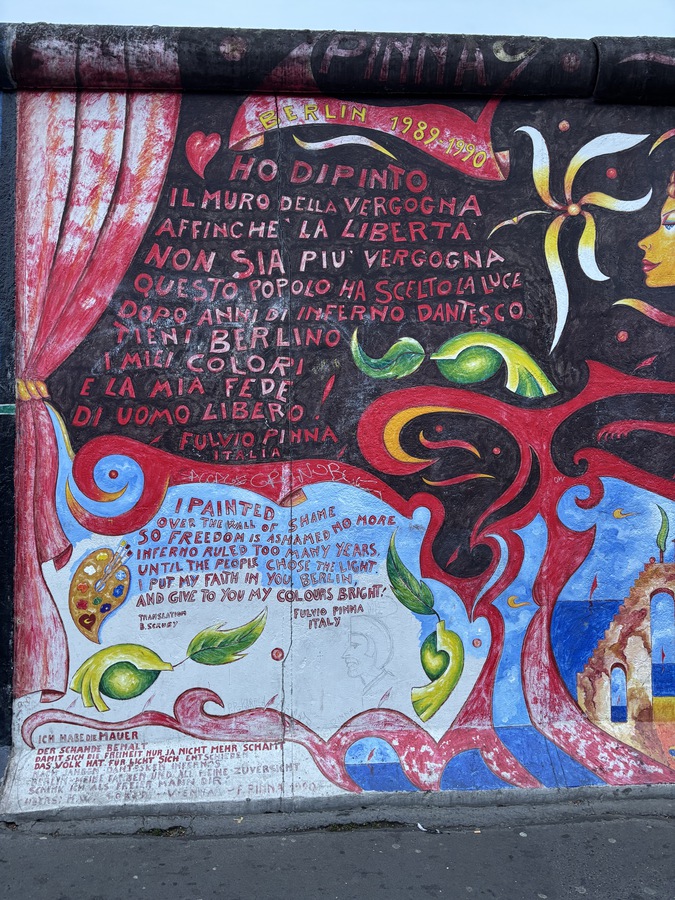 PINNA
BERLIN 1989, 1990
HO DIPINTO
IL MURO DELLA VERGOGNA
AFFINCHE' LA LIBERTA'
NON SIA PIU' VERGOGNA
QUESTO POPOLO HA SCELTO LA LUCE
DOPO ANNI DI INFERNO DANTESCO
TIENI BERLINO
I MIEI COLORI
E LA MIA FEDE
DI UOMO LIBERO!
FULVIO PINNA
ITALIA
I PAINTED
OVER THE WALL OF SHAME
SO FREEDOM IS ASHAMED NO MORE
INFERNO RULED TOO MANY YEARS,
UNTIL THE PEOPLE CHOSE THE LIGHT.
I PUT MY FAITH IN YOU, BERLIN,
AND GIVE TO YOU MY COLOURS BRIGHT!
TRANSLATION
FULVIO PINNA
ITALY
ICH HABE DIE MAUER
DER SCHANDE BEMALT
DAMIT SICH DIE FREIHEIT NUR JA NICHT MEHR SCHÄMT
DAS VOLK HAT FÜR LICHT SICH ENTSCHIEDEN
DANTESKEN INFERNOS
FARBEN UND ALL MEINE ZUVERSICHT
ICH ALS FREIER MANN DIR
F. PINNA